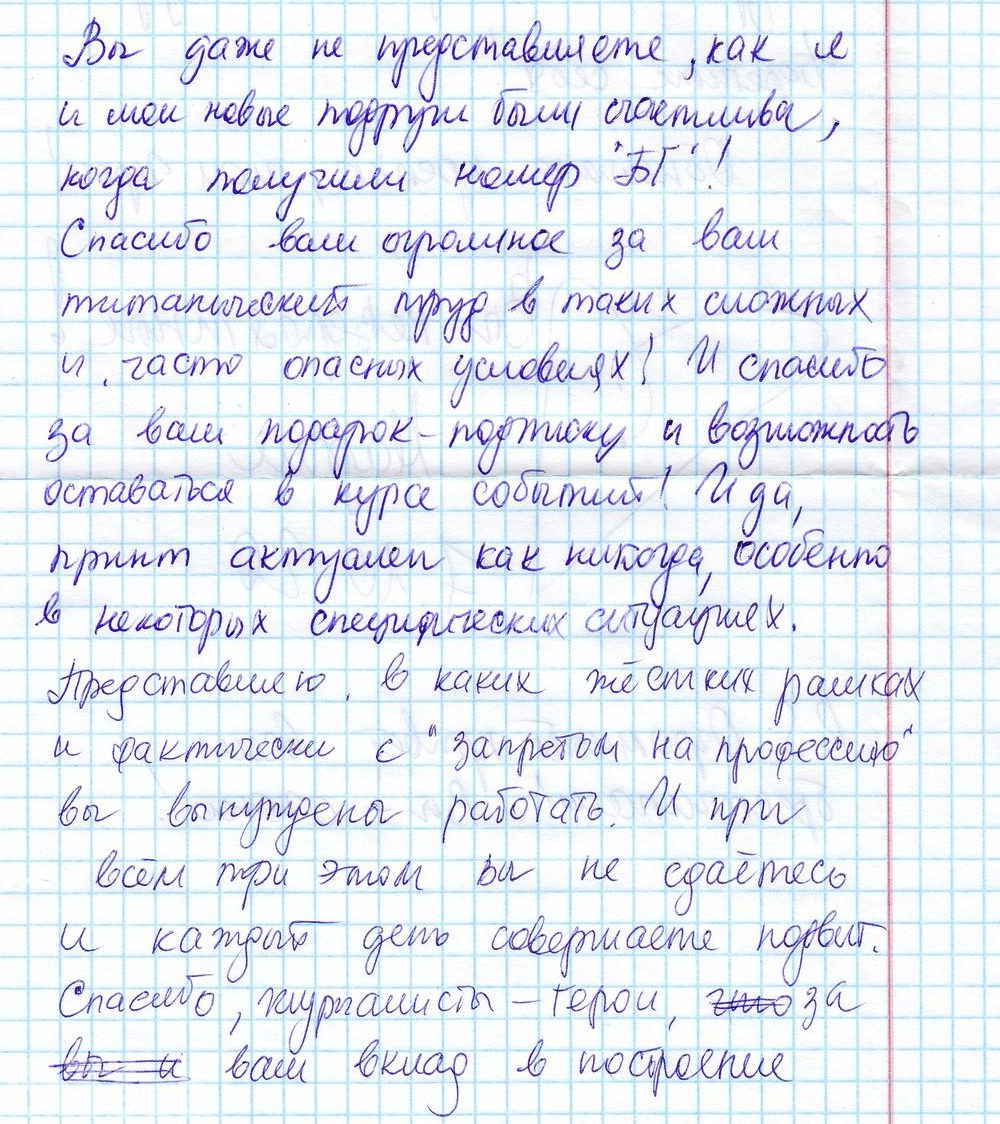 Вы даже не представляете, как я
и мои новые подруги были счастлива,
когда получили номер "БГ"!
Спасибо вам огромное за ваш
титанический труд в таких сложных
и часто опасных условиях! И спасибо
за ваш подарок-подписку и возможность
оставаться в курсе событий! И да,
принт актуален как никогда, особенно
в некоторых специфических ситуациях.
Представляю, в каких жёстких рамках
и фактически с "запретом на профессию"
вы вынуждены работать. И при
всём при этом вы не сдаётесь
и каждый день совершаете подвиг.
Спасибо, журналисты-герои, что за
вы и ваш вклад в построение